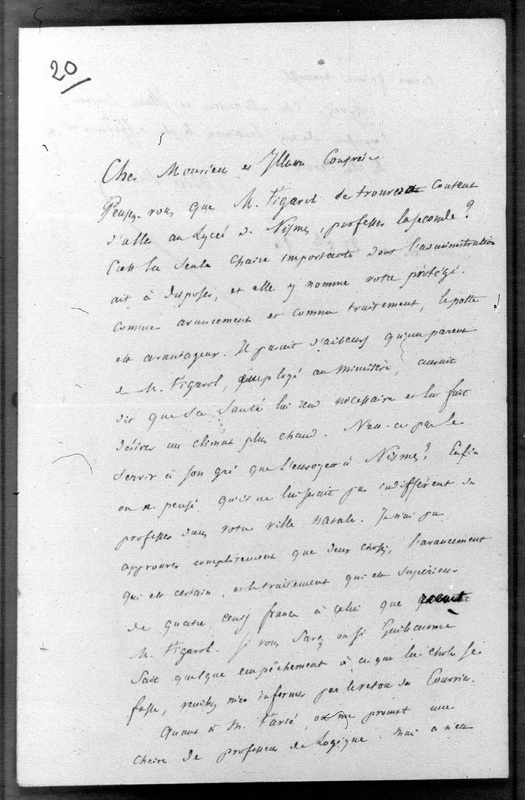 20
Cher Monsieur et Illustre Confrère
Pensez vous que M. Figarol se trouverait content
d'aller au Lycée de Nismes, professer la seconde?
C'est la seule chaire importante dont l'administration
ait à disposer, et elle y nomme votre protégé.
Comme avancement et comme traitement, le poste
est avantageux. Il paraît d'ailleurs qu'un parent
de M. Figarol, employé au ministère, aurait
dit que sa santé lui rend nécessaire et lui fait
désirer un climat plus chaud. N'est-ce pas le
servir à son gré que l'envoyer à Nismes? Enfin
on a pensé qu'il ne lui serait pas indifférent de
professer dans votre ville natale. Je n'ai pu
approuver complètement que deux choses, l'avancement
qui est certain, et le traitement qui est supérieur
de quatre cents francs à celui que reçoit
M. Figarol. Si vous savez ou si Guillaume
sait quelque empêchement à ce que la chose se
fasse, veuillez m'en informer par le retour du Courrier.
Quant à M. on me promet une
chaire de professeur de Logique. mais a rien